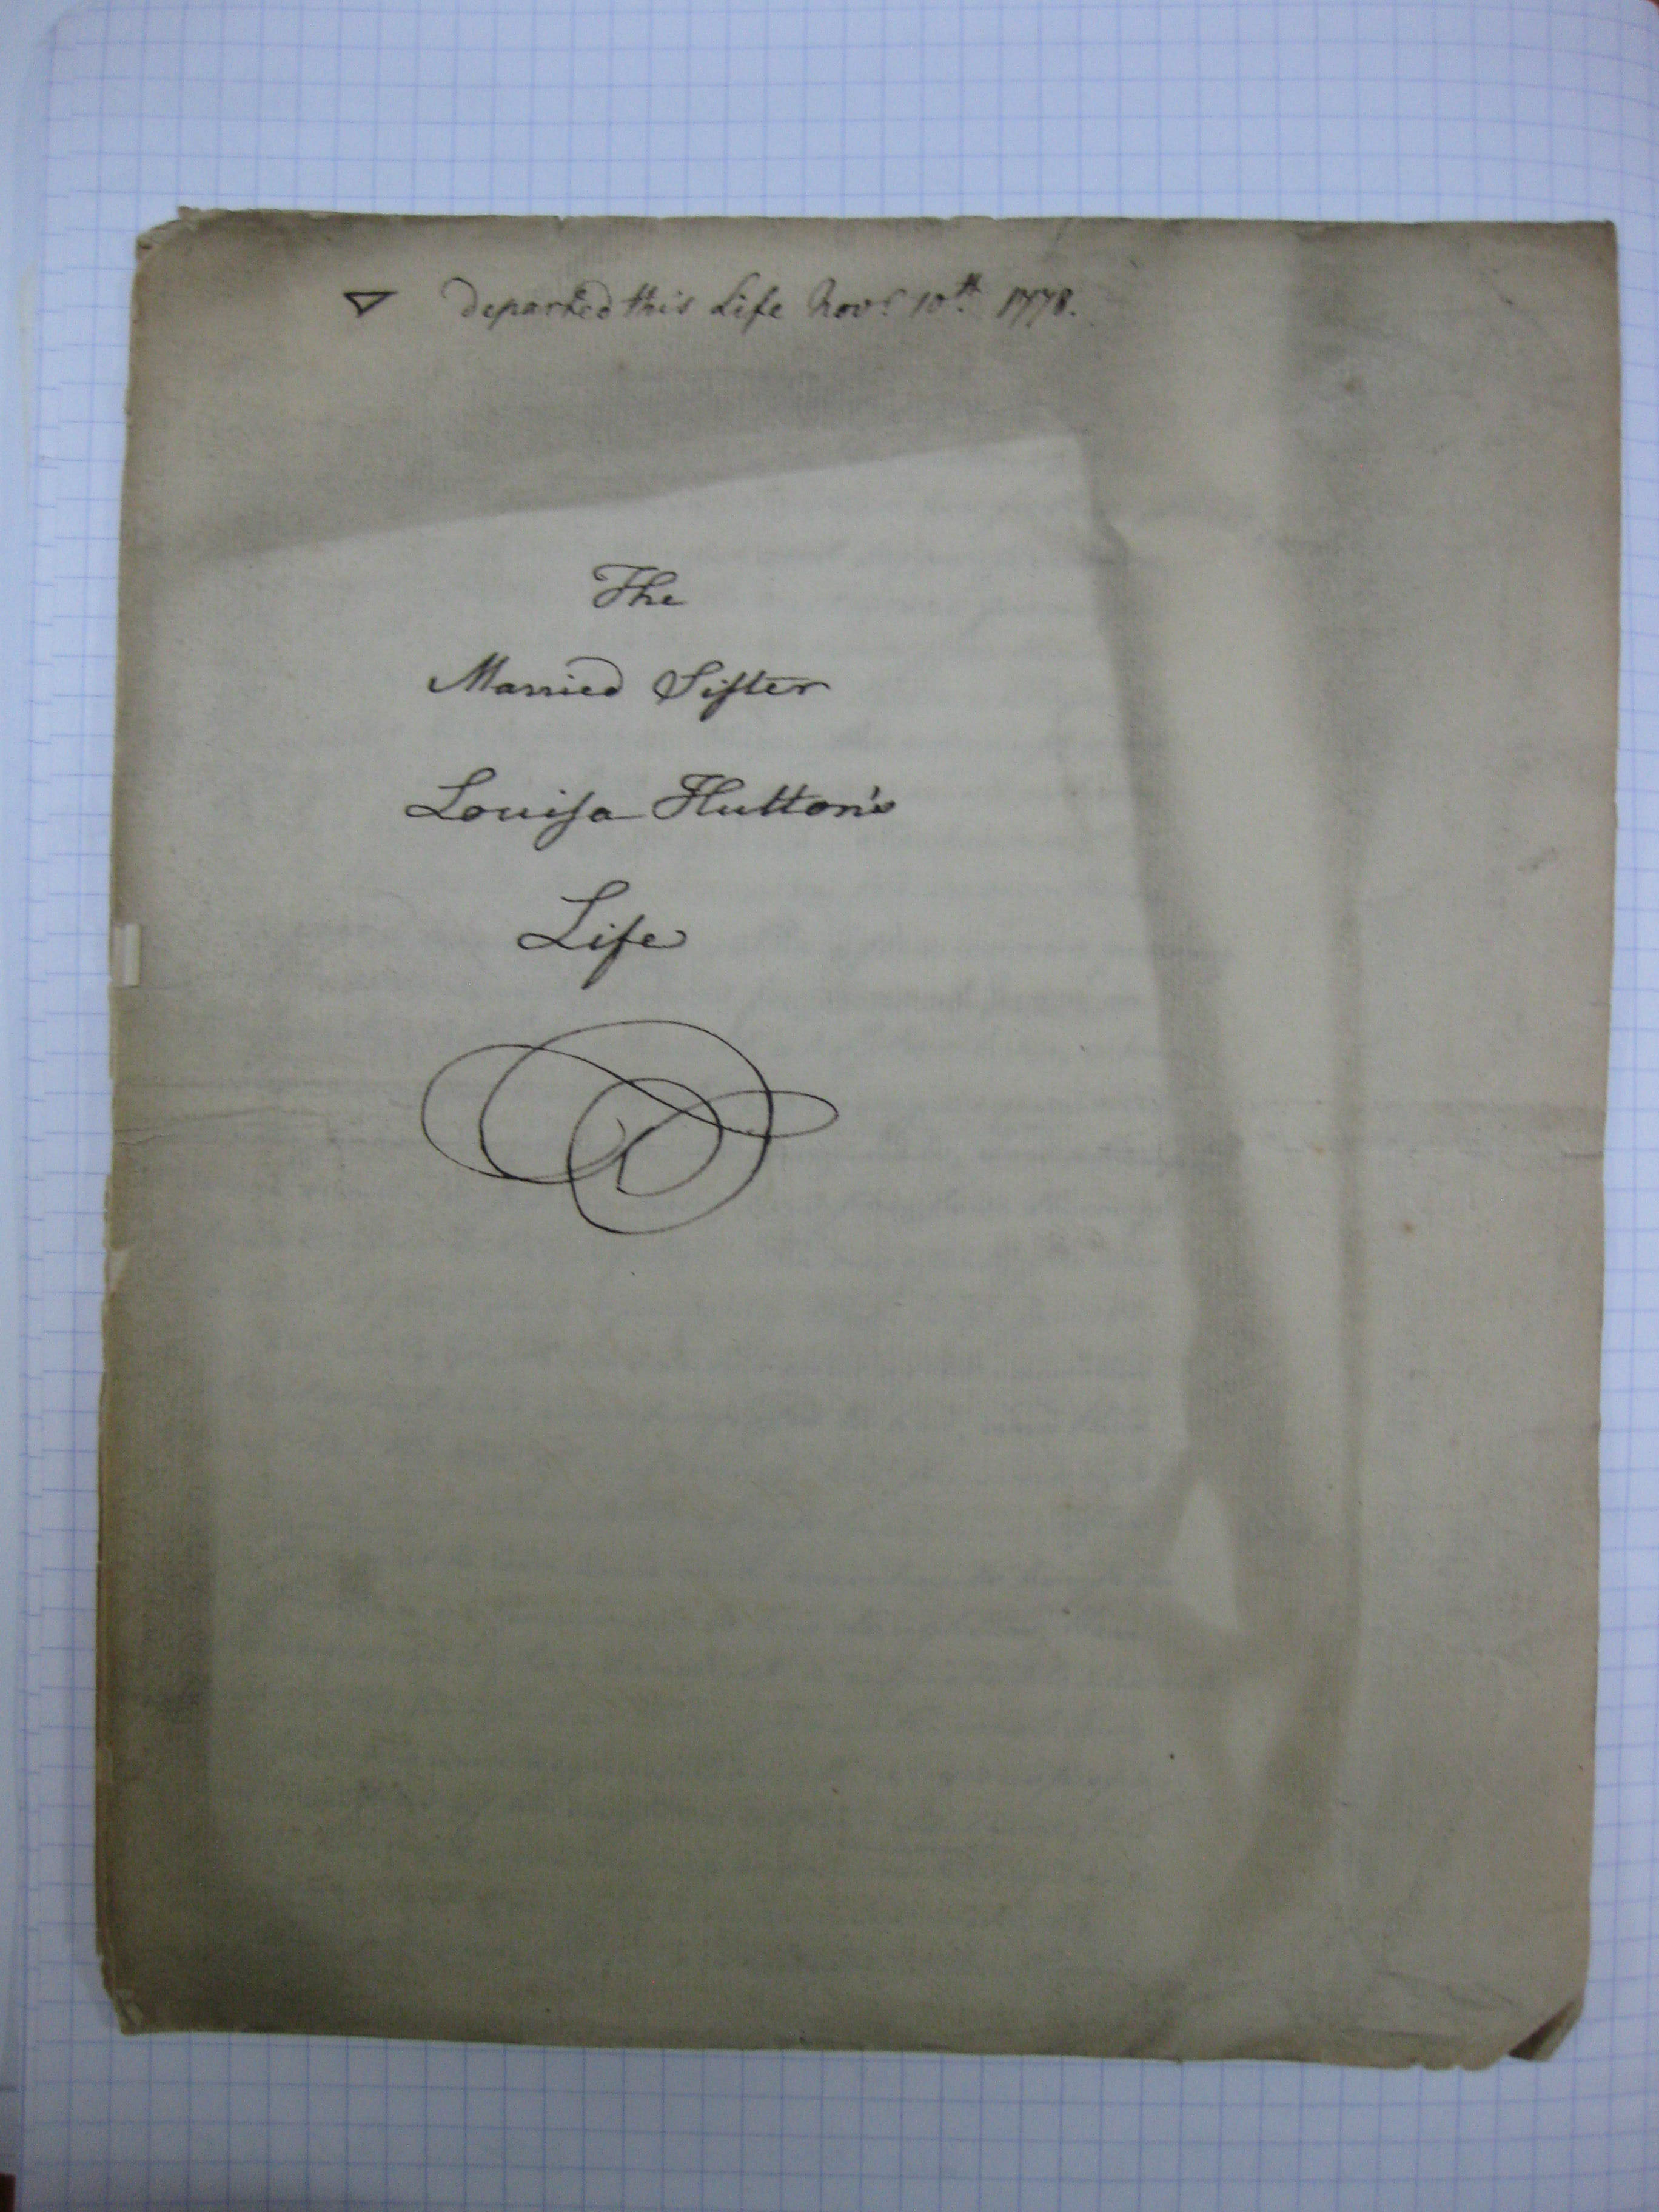 ▽ departed this Life Novr. 10th. 1778.
The
Married Sister
Louisa Hutton's
Life